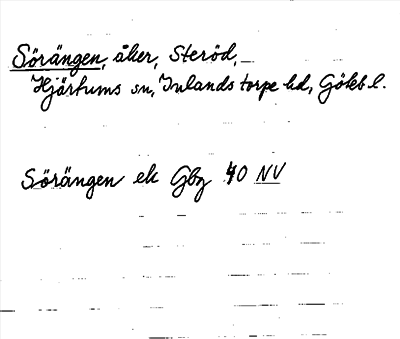 Sörängen, åker, Steröd,
Hjärtums sn, Inlands torpe hd, Götebl.
Sörängen ek Gbg 40 NV